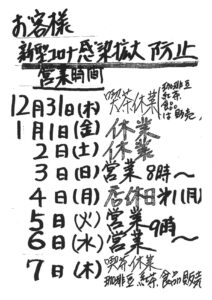 お客様
新型コロナ感染拡大防止
営業時間
12月31日(木) 喫茶休業 珈琲豆 紅茶 食品は販売
1月1日(金) 休業
2日(土) 休業
3日(日) 営業 8時〜
4日(月) 店休日 第1(月)
5日(火) 営業
6日(水) 営業 9時〜
7日(木) 喫茶休業
珈琲豆 紅茶 食品販売